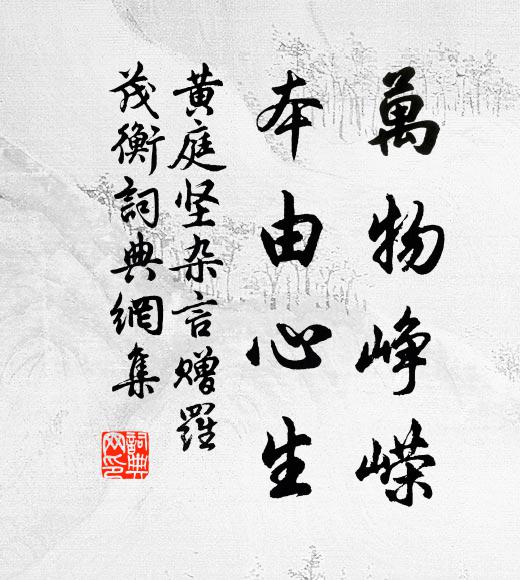 萬物峥嵘
本由心生
黄庭坚杂言赠羅
茂衡詞典網集
詞典
网印